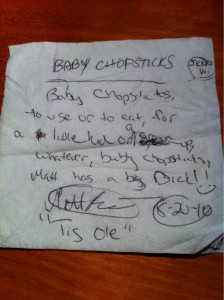 BABY CHOPSTICKS
Baby Chopsticks,
to use or to eat, for
a little kid or a grown up,
whatever, baby chopsticks,
Matt has a big Dick!!
8-20-10
"Tis ole"